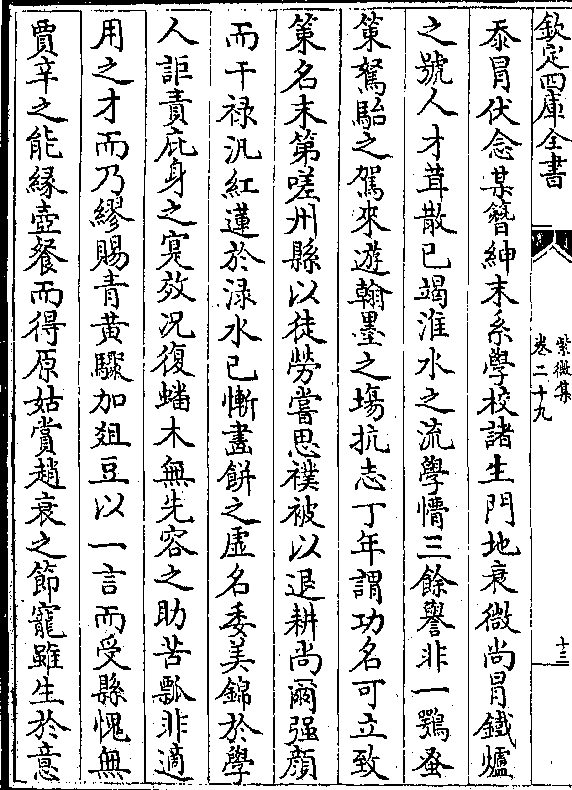 欽定四庫全書
紫微集
卷二十九
十三
忝冒伏念某簪紳末系學校諸生門地衰微尚冒鐵爐
之號人才茸散已竭淮水之流學慣三餘譽非一鶚蚤
策駑駘之駕來遊翰墨之塲抗志丁年謂功名可立致
策名末第嗟州縣以徒勞嘗思襆被以退耕尚爾强顔
而干禄汎紅蓮於渌水已慚畫餅之虛名委美錦於學
人詎責庇身之寔效况復蟠木無先容之助苦瓢非適
用之才而乃繆賜青黄驟加爼豆以一言而受縣愧無
賈辛之能緣壺餐而得原姑賞趙衰之節寵雖生於意